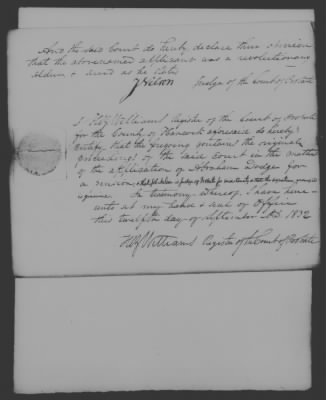 And the said Court do hereby declare their opinion
that the above named applicant was a revolutionary
soldier & served as he states
J Nelson Judge of the Court of Probate
I Hez Williams Register of the Court of Probate
for the County of Hancock aforesaid do hereby
Certify, that the foregoing contains the original
proceedings of the said Court in the matter
of the application of Abraham Dodge for
a pension & that Job Nelson is Judge of Probate for said County & that the signature
is genuine. In testimony whereof I have here-
unto set my hand & seal of Office
this twelfth day of September A.D. 1832
Hez Williams Register of the Court of Probate